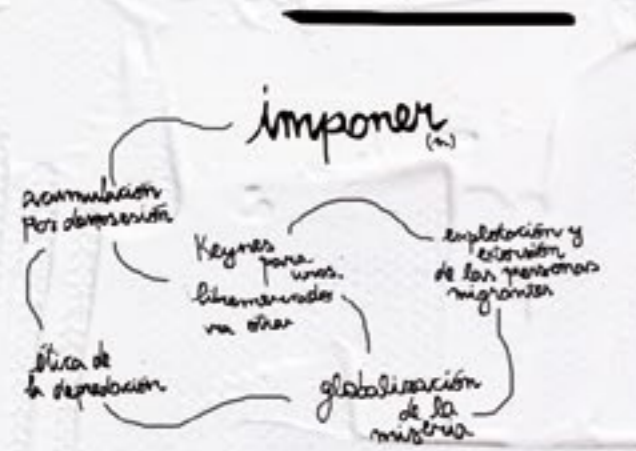 imponer
(n)
acumulación
por desposesión
Keynes
para
unos.
libremercado
otras
explotación y
extorsión
de las personas
migrantes
ética de
la depredación
globalización
de la
miseria